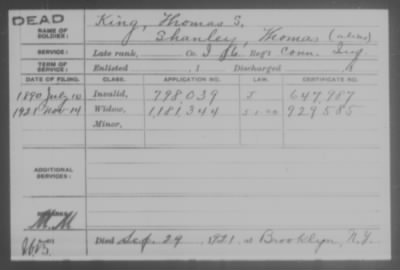 DEAD
NAME OF SOLDIER: King, Thomas S.
Shanley, Thomas (alias)
SERVICE: Late rank, Co. I, 6 Reg't Conn. Inf.
TERM OF SERVICE: Enlisted , 1 Discharged , 1
DATE OF FILING. CLASS. APPLICATION NO. LAW. CERTIFICATE NO.
1890 July 10 Invalid, 798,039 J 647,987
1921 Nov 14 Widow, 1,181,344 929,585
Minor,
ADDITIONAL SERVICES:
REMARKS
M.M
Died Sep. 29, 1921, at Brooklyn, N.Y.